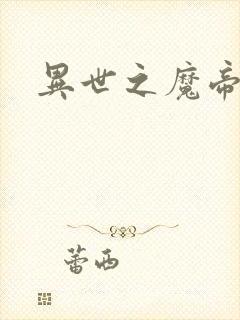 異世之魔帝
蕾西